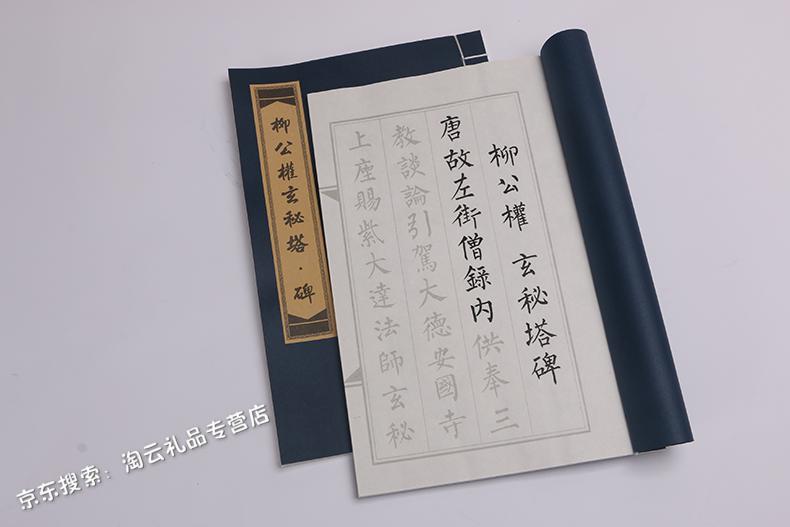 柳公權玄秘塔·碑
柳公權 玄秘塔碑
唐故左街僧錄内供奉三
教談論引駕大德安國寺
上座賜紫大達法師玄秘
京东搜索：淘云礼品专营店